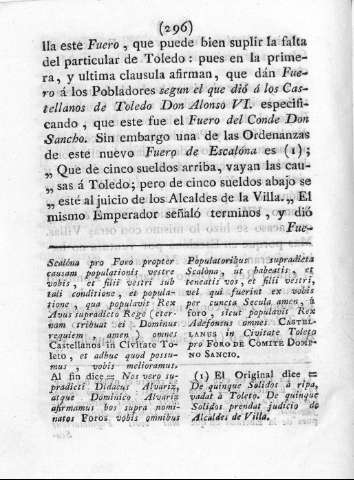 (296)
lla este Fuero, que puede bien suplir la falta
del particular de Toledo: pues en la prime-
ra, y ultima clausula afirman, que dán Fue-
ro á los Pobladores segun el que dió á los Cas-
tellanos de Toledo Don Alonso VI. especifi-
cando, que este fue el Fuero del Conde Don
Sancho. Sin embargo una de las Ordenanzas
de este nuevo Fuero de Escalóna es (1);
„ Que de cinco sueldos arriba, vayan las cau-
„ sas á Toledo; pero de cinco sueldos abajo se
„ esté al juicio de los Alcaldes de la Villa.„ El
mismo Emperador señaló terminos, y dió
Fue-
Scalóna pro Foro propter
causam populationis vestre
vobis, et filii vestri sub
tali conditione, et popula-
tione, qua populavit Rex
Avus supradicto Rege (eter-
nam tribuat ei Dominus
requiem, amen) omnes
Castellanos in Civitate To-
leto, et adhuc quod possu-
mus, vobis melioramus.
Al fin dice = Nos vero su-
pradicti Didacus Alvariz,
atque Dominico Alvariz
afirmamus hos supra nomi-
natos Foros vobis omnibus
Populatoribus supradicta
Scalóna, ut habeatis, et
teneatis vos, et filii vestri,
vel qui fuerint ex vobis
per cuncta Secula amen, á
foro, sicut populavit Rex
Adefonsus omnes CASTEL-
LANOS in Civitate Toleto
pro FORO DE COMITE DOMP-
NO SANCIO.
(1) El Original dice =
De quinque Solidos à ripa,
vadat à Toleto. De quinque
Solidos prendat judicio de
Alcaldes de Villa.